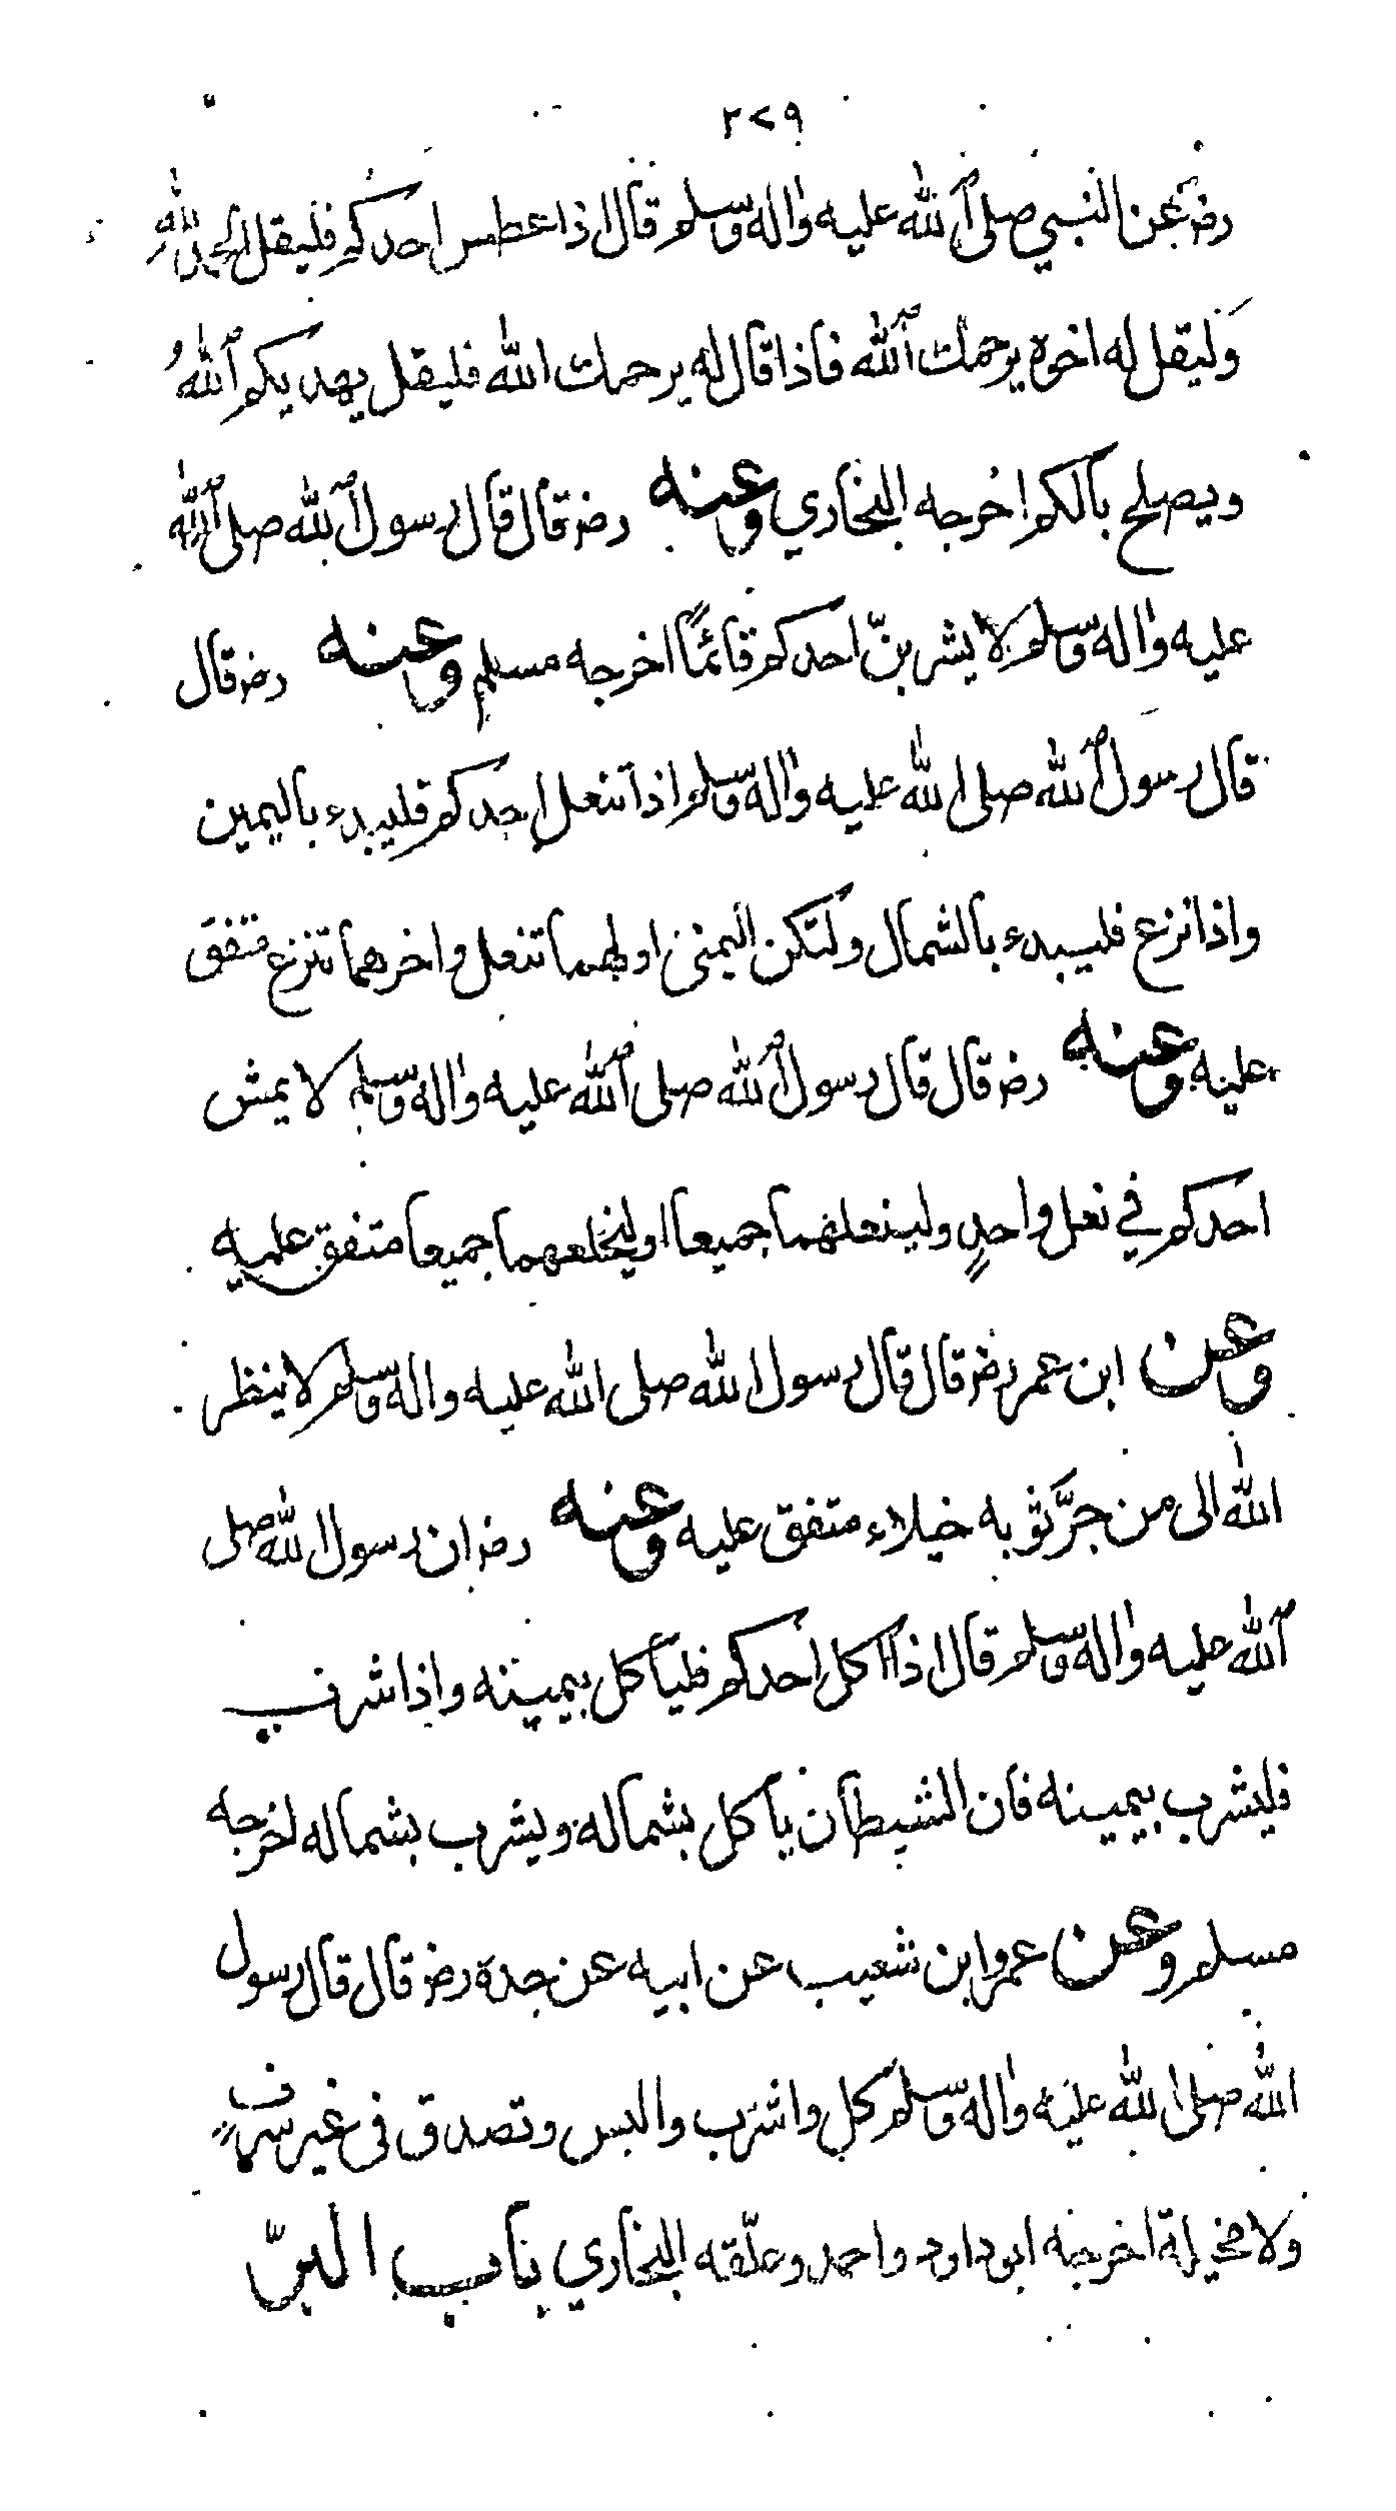 ٢٧٩
رضه عن النبي صلى الله عليه واله وسلم قال اذا عطس احدكم فليقل الحمد لله
وليقل له اخوه يرحمك الله فاذا قال له يرحمك الله فليقل يهديكم اللهُ
ويصلح بالكم اخرجه البخاري وعنه رضه قال قال رسول الله صلى الله
عليه واله وسلم لا يشربنّ احدكم قائمًا اخرجه مسلم وعنه رضه قال
قال رسول الله صلى الله عليه واله وسلم اذا تنعل احدكم فليبدء باليمين
واذا نزع فليبدء بالشمال ولتكن اليمنى اولهما تنعل واخرهما تنزع متفق
عليه وعنه رضه قال قال رسول الله صلى الله عليه واله وسلم لا يمش
احدكم في نعل واحدٍ ولينعلهما جميعا اوليخلعهما جميعا متفق عليه
وعن ابن عمر رضه قال قال رسول الله صلى الله عليه واله وسلم لا ينظر
الله الى من جرَّ ثوبه خيلاء متفق عليه وعنه رضه ان رسول الله صلى
الله عليه واله وسلم قال اذا اكل احدكم فليأكل بيمينه واذا شرب
فليشرب بيمينه فان الشيطان يأكل بشماله ويشرب بشماله اخرجه
مسلم وعن عمرو ابن شعيب عن ابيه عن جده رضه قال قال رسول
الله صلى الله عليه واله وسلم كل واشرب والبس وتصدق فى غير سرفٍ
ولا مخيلة اخرجه ابوداود واحمد وعلّقه البخاري باب البرّ